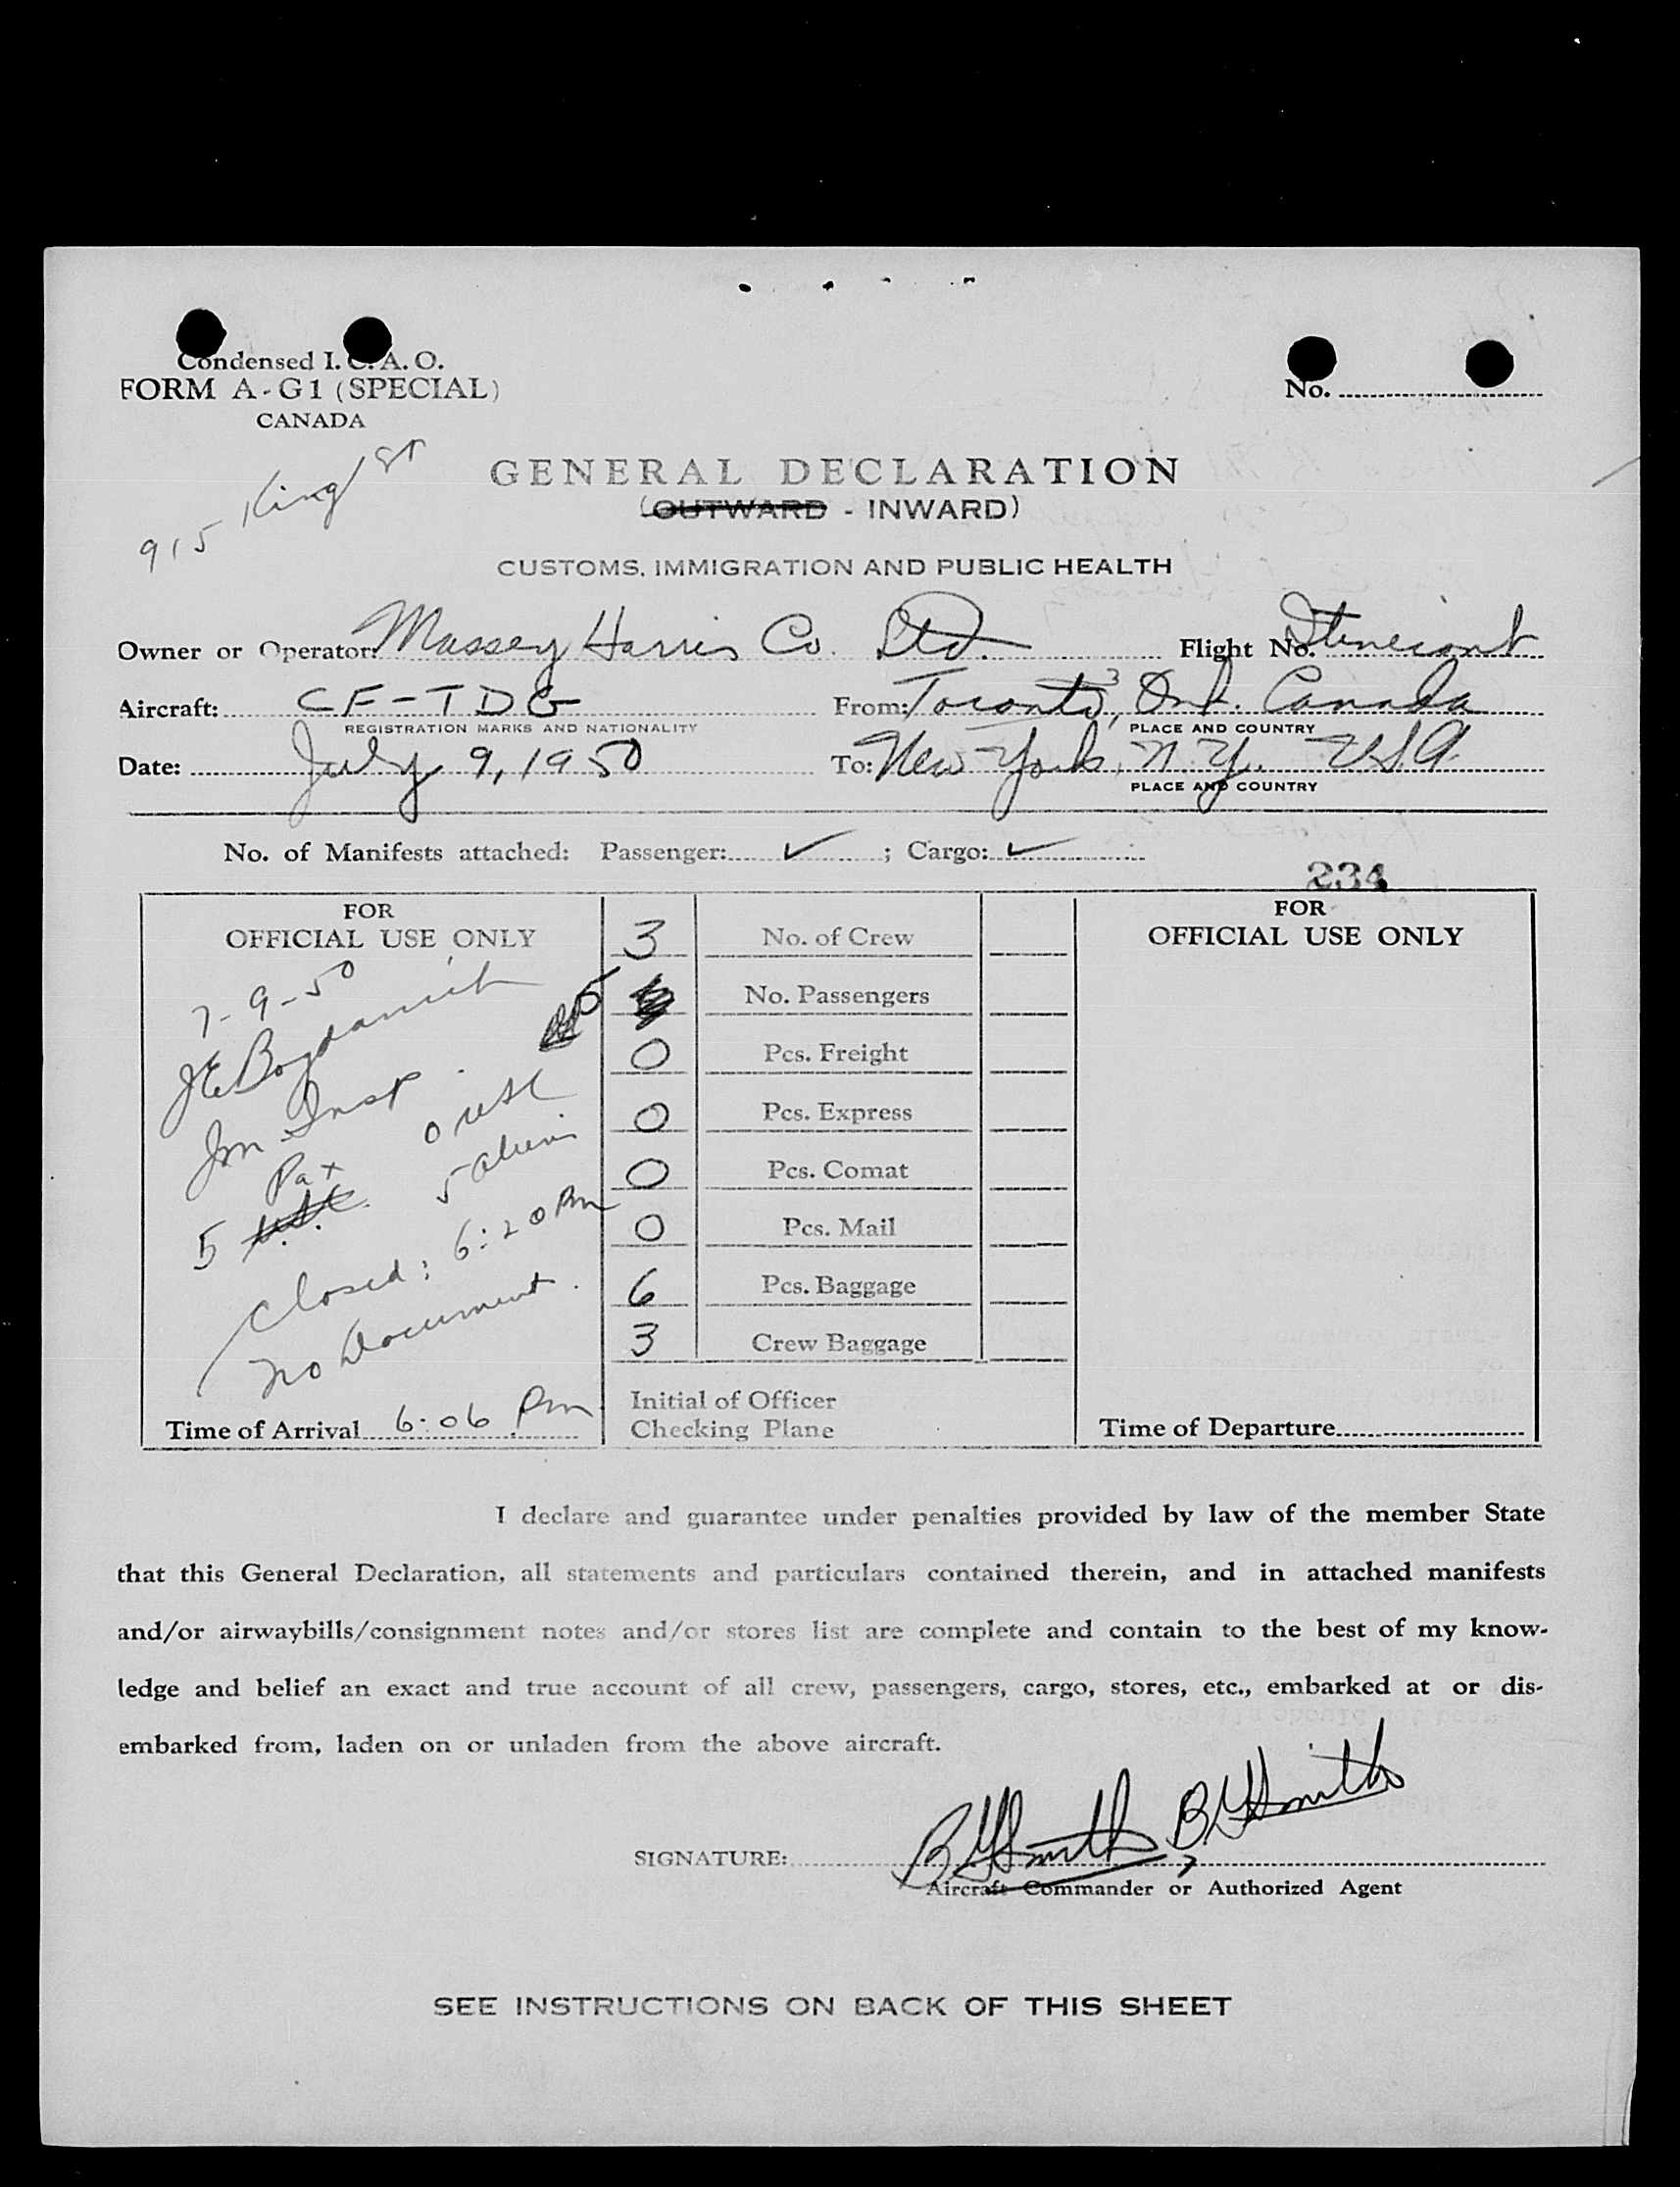 Condensed I. C. A. O.
FORM A-G1 (SPECIAL)
CANADA
No.
915 King St
GENERAL DECLARATION
(OUTWARD - INWARD)
CUSTOMS, IMMIGRATION AND PUBLIC HEALTH
Owner or Operator: Massey Harris Co. Ltd. Flight No. Itinerant
Aircraft: CF-TDG From: Toronto, Ont. Canada
REGISTRATION MARKS AND NATIONALITY PLACE AND COUNTRY
Date: July 9, 1950 To: New York, N.Y. USA
PLACE AND COUNTRY
No. of Manifests attached: Passenger: ✓ ; Cargo: ✓
234
FOR
OFFICIAL USE ONLY
7-9-50
Im Insp
Pax 0 USC
5 5 alien
Closed: 6:20 Pm
No Document.
Time of Arrival 6:06 Pm
3 No. of Crew
5 No. Passengers
0 Pcs. Freight
0 Pcs. Express
0 Pcs. Comat
0 Pcs. Mail
6 Pcs. Baggage
3 Crew Baggage
Initial of Officer
Checking Plane
FOR
OFFICIAL USE ONLY
Time of Departure
I declare and guarantee under penalties provided by law of the member State
that this General Declaration, all statements and particulars contained therein, and in attached manifests
and/or airwaybills/consignment notes and/or stores list are complete and contain to the best of my know-
ledge and belief an exact and true account of all crew, passengers, cargo, stores, etc., embarked at or dis-
embarked from, laden on or unladen from the above aircraft.
SIGNATURE: Smith Smith
Aircraft Commander or Authorized Agent
SEE INSTRUCTIONS ON BACK OF THIS SHEET